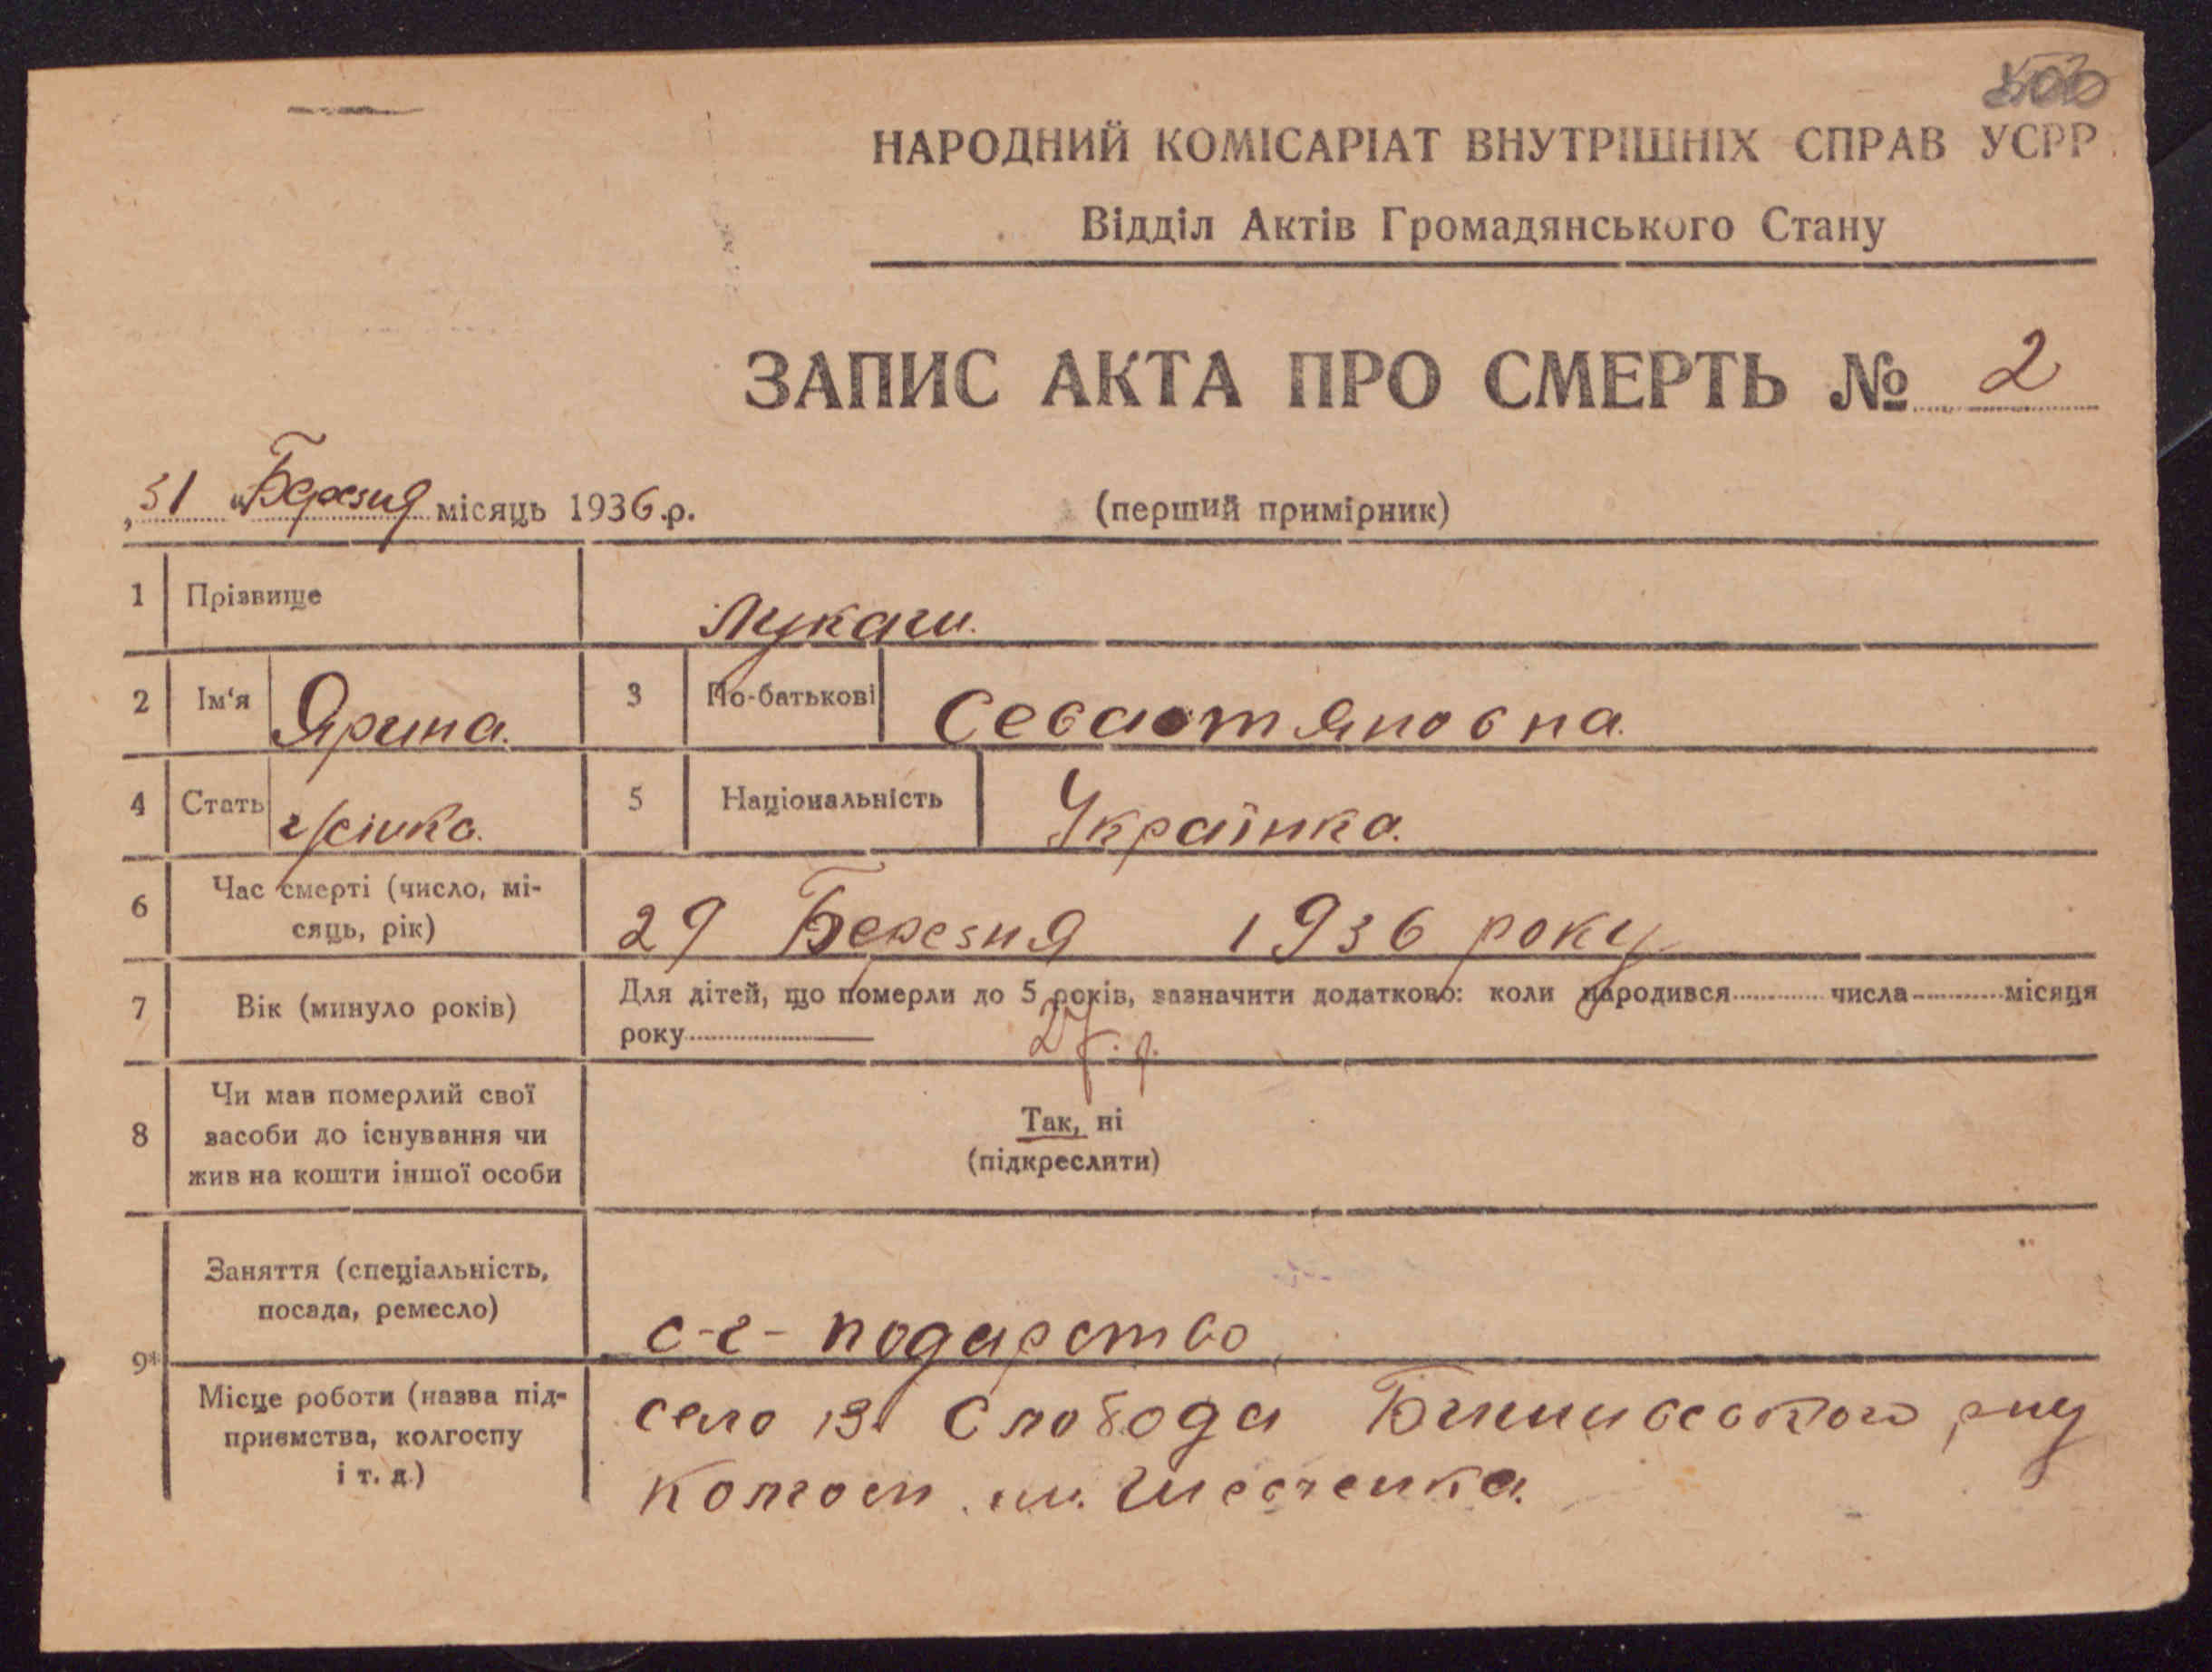 НАРОДНИЙ КОМІСАРІАТ ВНУТРІШНІХ СПРАВ УСРР
Відділ Актів Громадянського Стану
ЗАПИС АКТА ПРО СМЕРТЬ № 2
„31 “ Березня місяць 1936 .р.
(перший примірник)
1 Прізвище Лукаш
2 Ім‘я Ярина. 3 По-батькові Севастяновна.
4 Стать жінка. 5 Національність Українка.
6 Час смерті (число, мі-
сяць, рік) 29 Березня 1936 року
7 Вік (минуло років) Для дітей, що померли до 5 років, зазначити додатково: коли народився числа місяця
року 27. р.
8 Чи мав померлий свої
засоби до існування чи
жив на кошти іншої особи
Так, ні
(підкреслити)
9* Заняття (спеціальність,
посада, ремесло) с-г-подарство
Місце роботи (назва під-
приємства, колгоспу
і т. д.)
село В Слобода р-ну
колгосп ім. Шевченка.